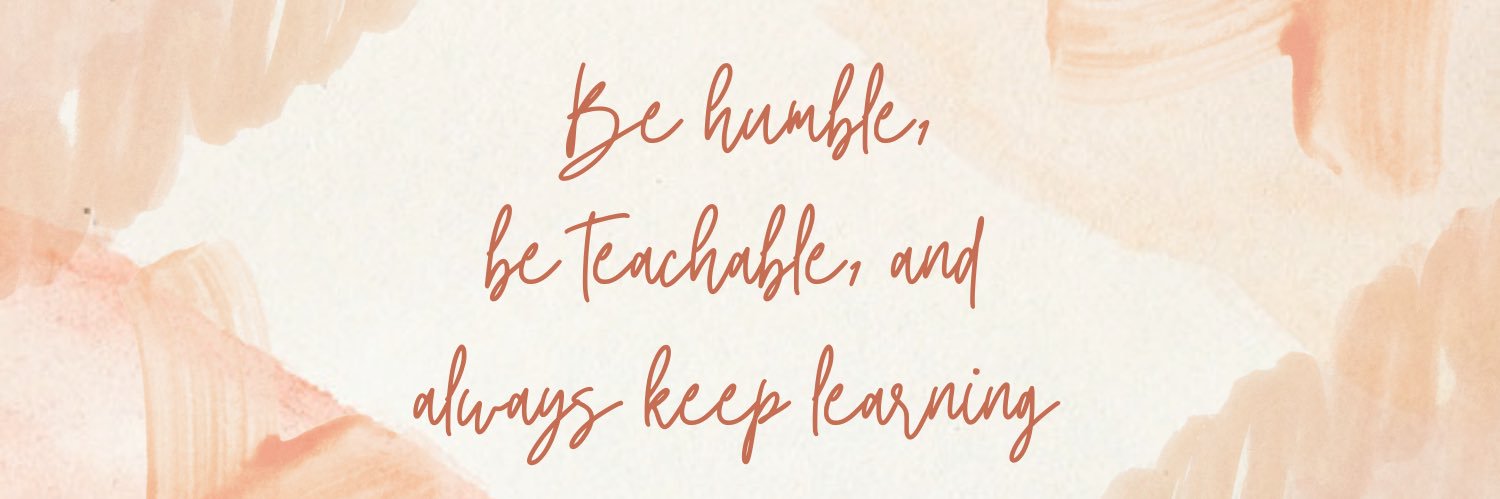 Be humble,
be teachable, and
always keep learning